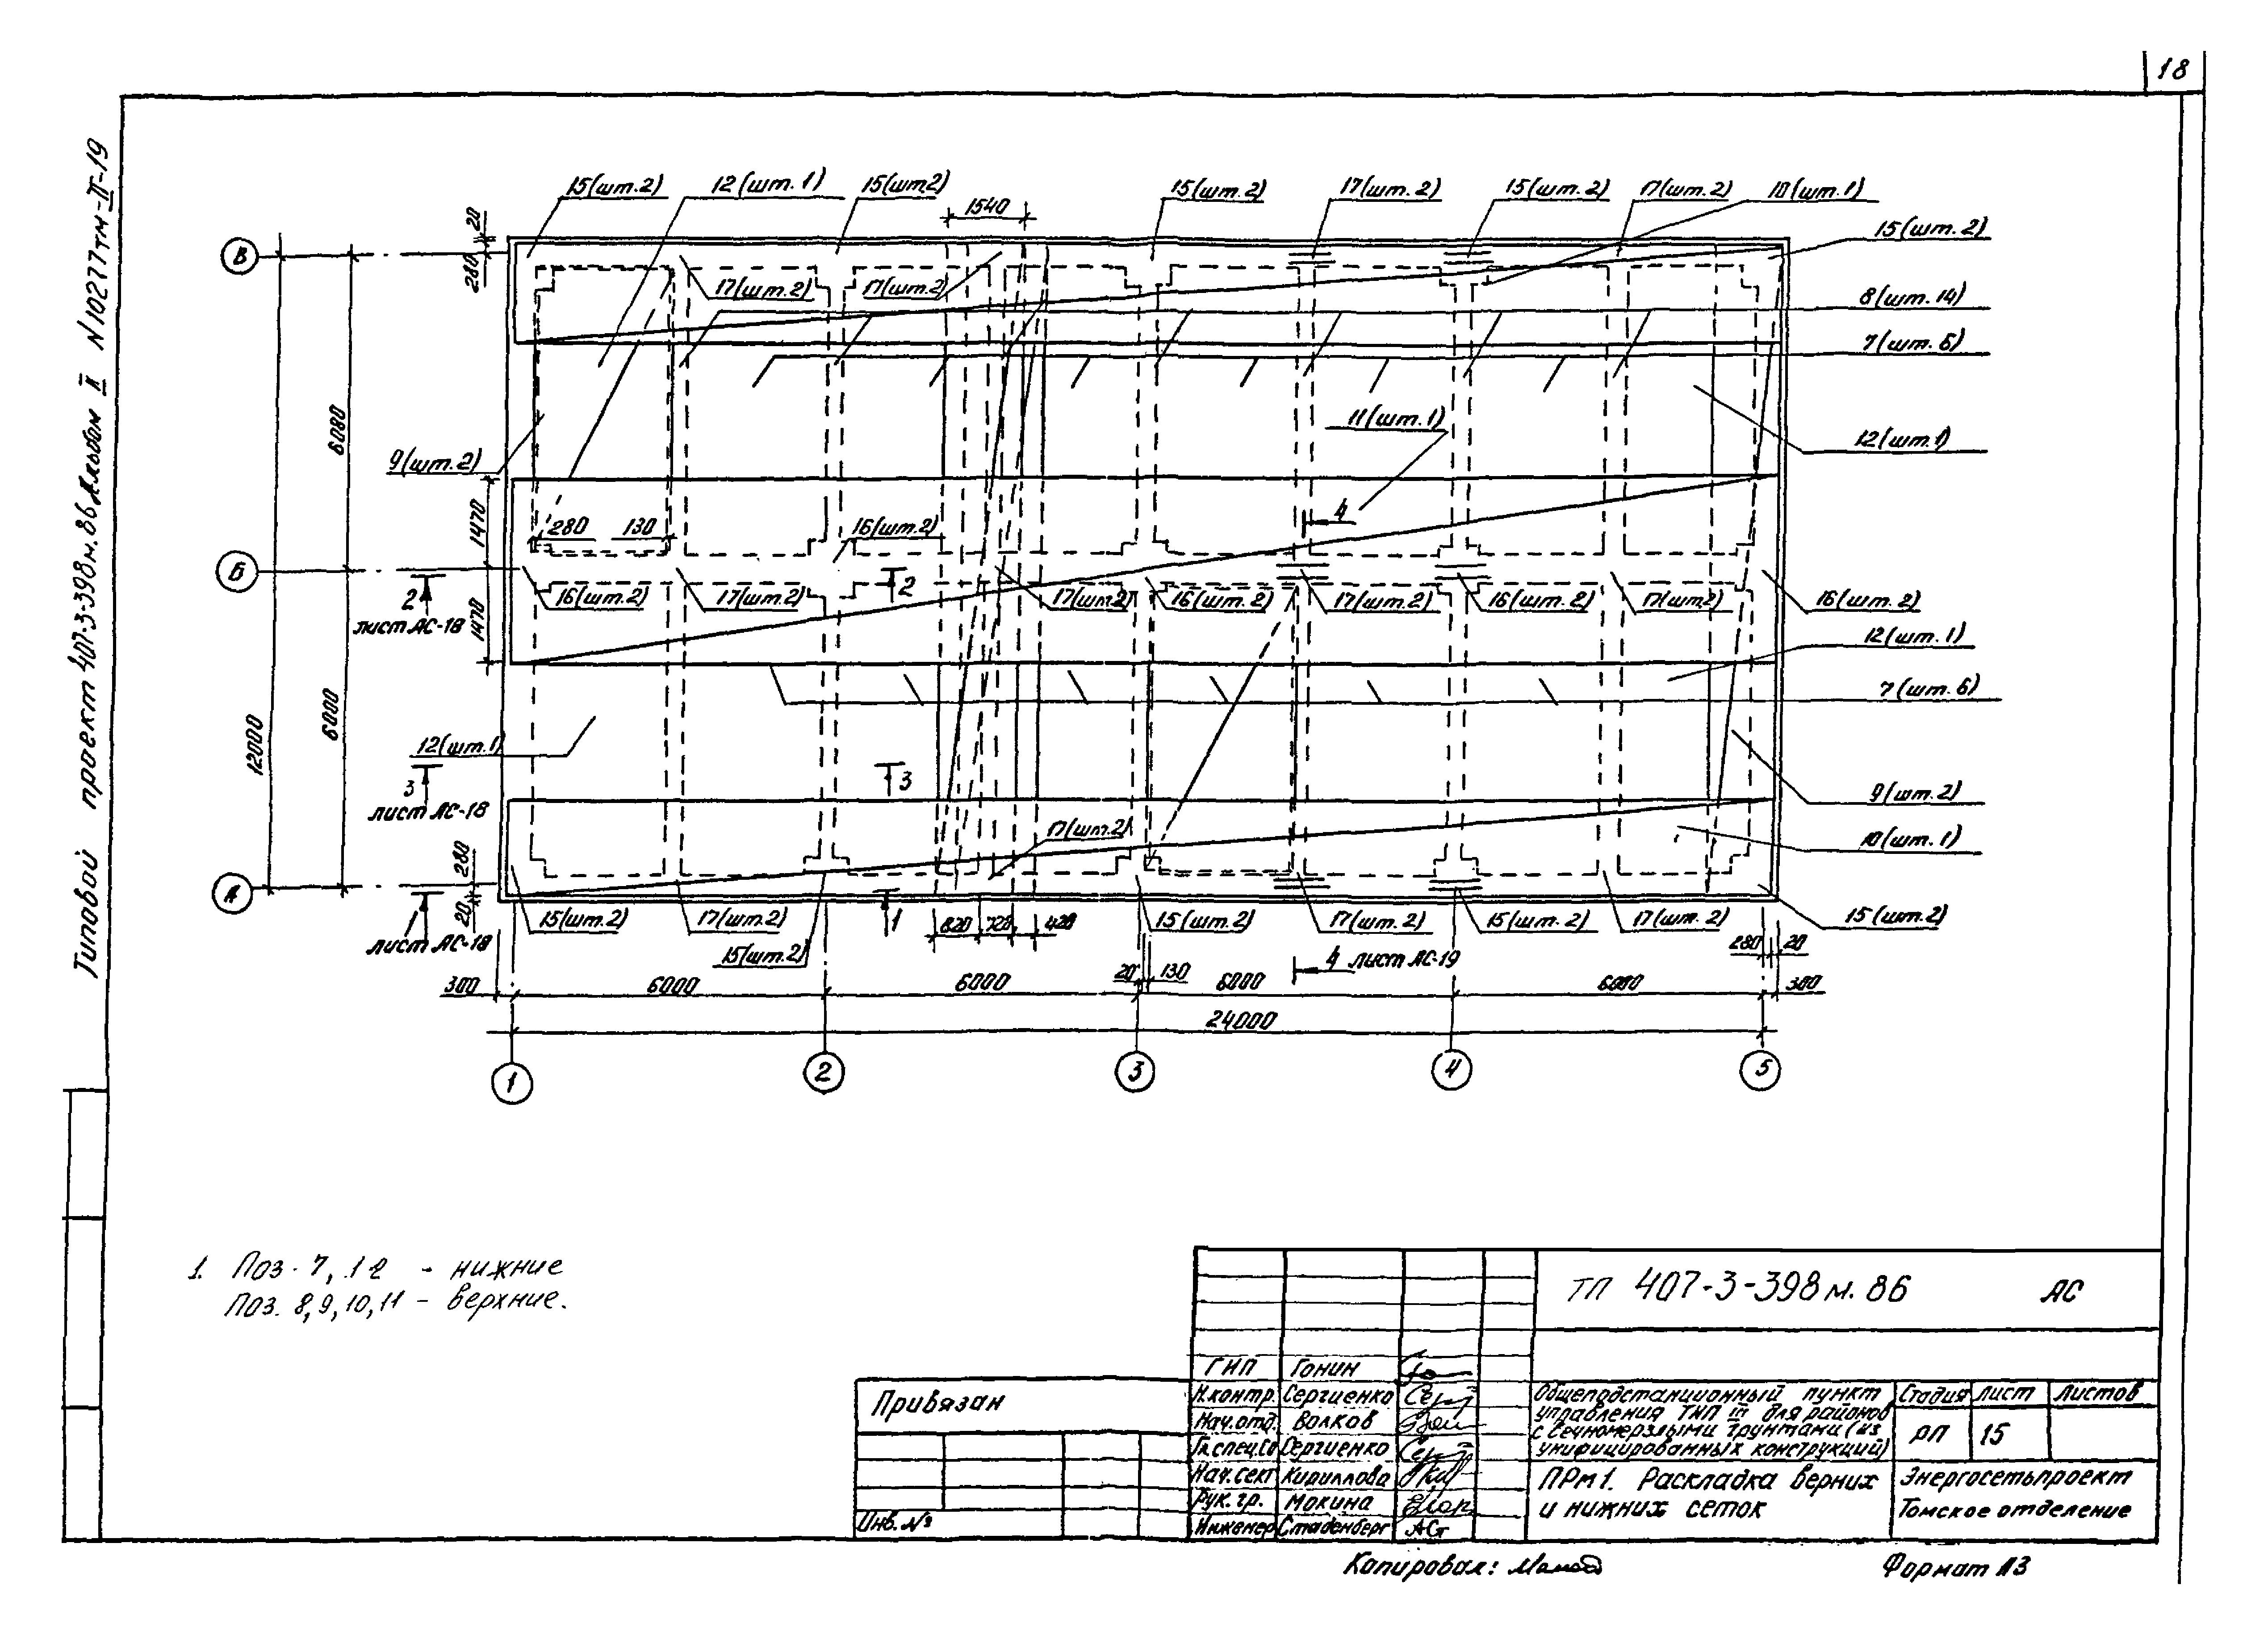 18
Типовой проект 407-3-398м.86 Альбом II N10277тм-II-19
15(шт.2)
12(шт.1)
15(шт2)
1540
15(шт.2)
17(шт.2)
15(шт.2)
17(шт.2)
10(шт.1)
15(шт.2)
20
В
280
17(шт.2)
17(шт.2)
8(шт.14)
7(шт.6)
11(шт.1)
12(шт.1)
6080
9(шт.2)
1470
280
130
16(шт.2)
4
Б
2
2
16(шт.2)
17(шт.2)
17(шт.2)
16(шт.2)
17(шт.2)
16(шт.2)
17(шт2)
16(шт.2)
лист АС-18
1470
12(шт.1)
7(шт.6)
6000
12000
12(шт.1)
3
3
лист АС-18
9(шт.2)
17(шт.2)
10(шт.1)
280
А
20
1
1
лист АС-18
15(шт.2)
17(шт.2)
15(шт.2)
820
720
420
15(шт.2)
17(шт.2)
15(шт.2)
17(шт.2)
15(шт.2)
280
20
4 лист АС-19
20
130
300
6000
6000
6000
6000
300
24000
1
2
3
4
5
1. Поз. 7, 12 - нижние
Поз. 8,9,10,11 - верхние.
ТП 407-3-398м.86 АС
ГИП Гонин
Н.контр Сергиенко
Нач.отд. Волков
Гл.спец.Со Сергиенко
Нач.сект Кириллова
Рук.гр. Мокина
Инженер Стаденберг АСт
Привязан
Инв.№
Общеподстанционный пункт
управления ТИП III для районов
с вечномерзлыми грунтами (из
унифицированных конструкций)
Стадия Лист Листов
РП 15
ПРм1. Раскладка верних
и нижних сеток
Энергосетьпроект
Томское отделение
Копировал:
Формат А3